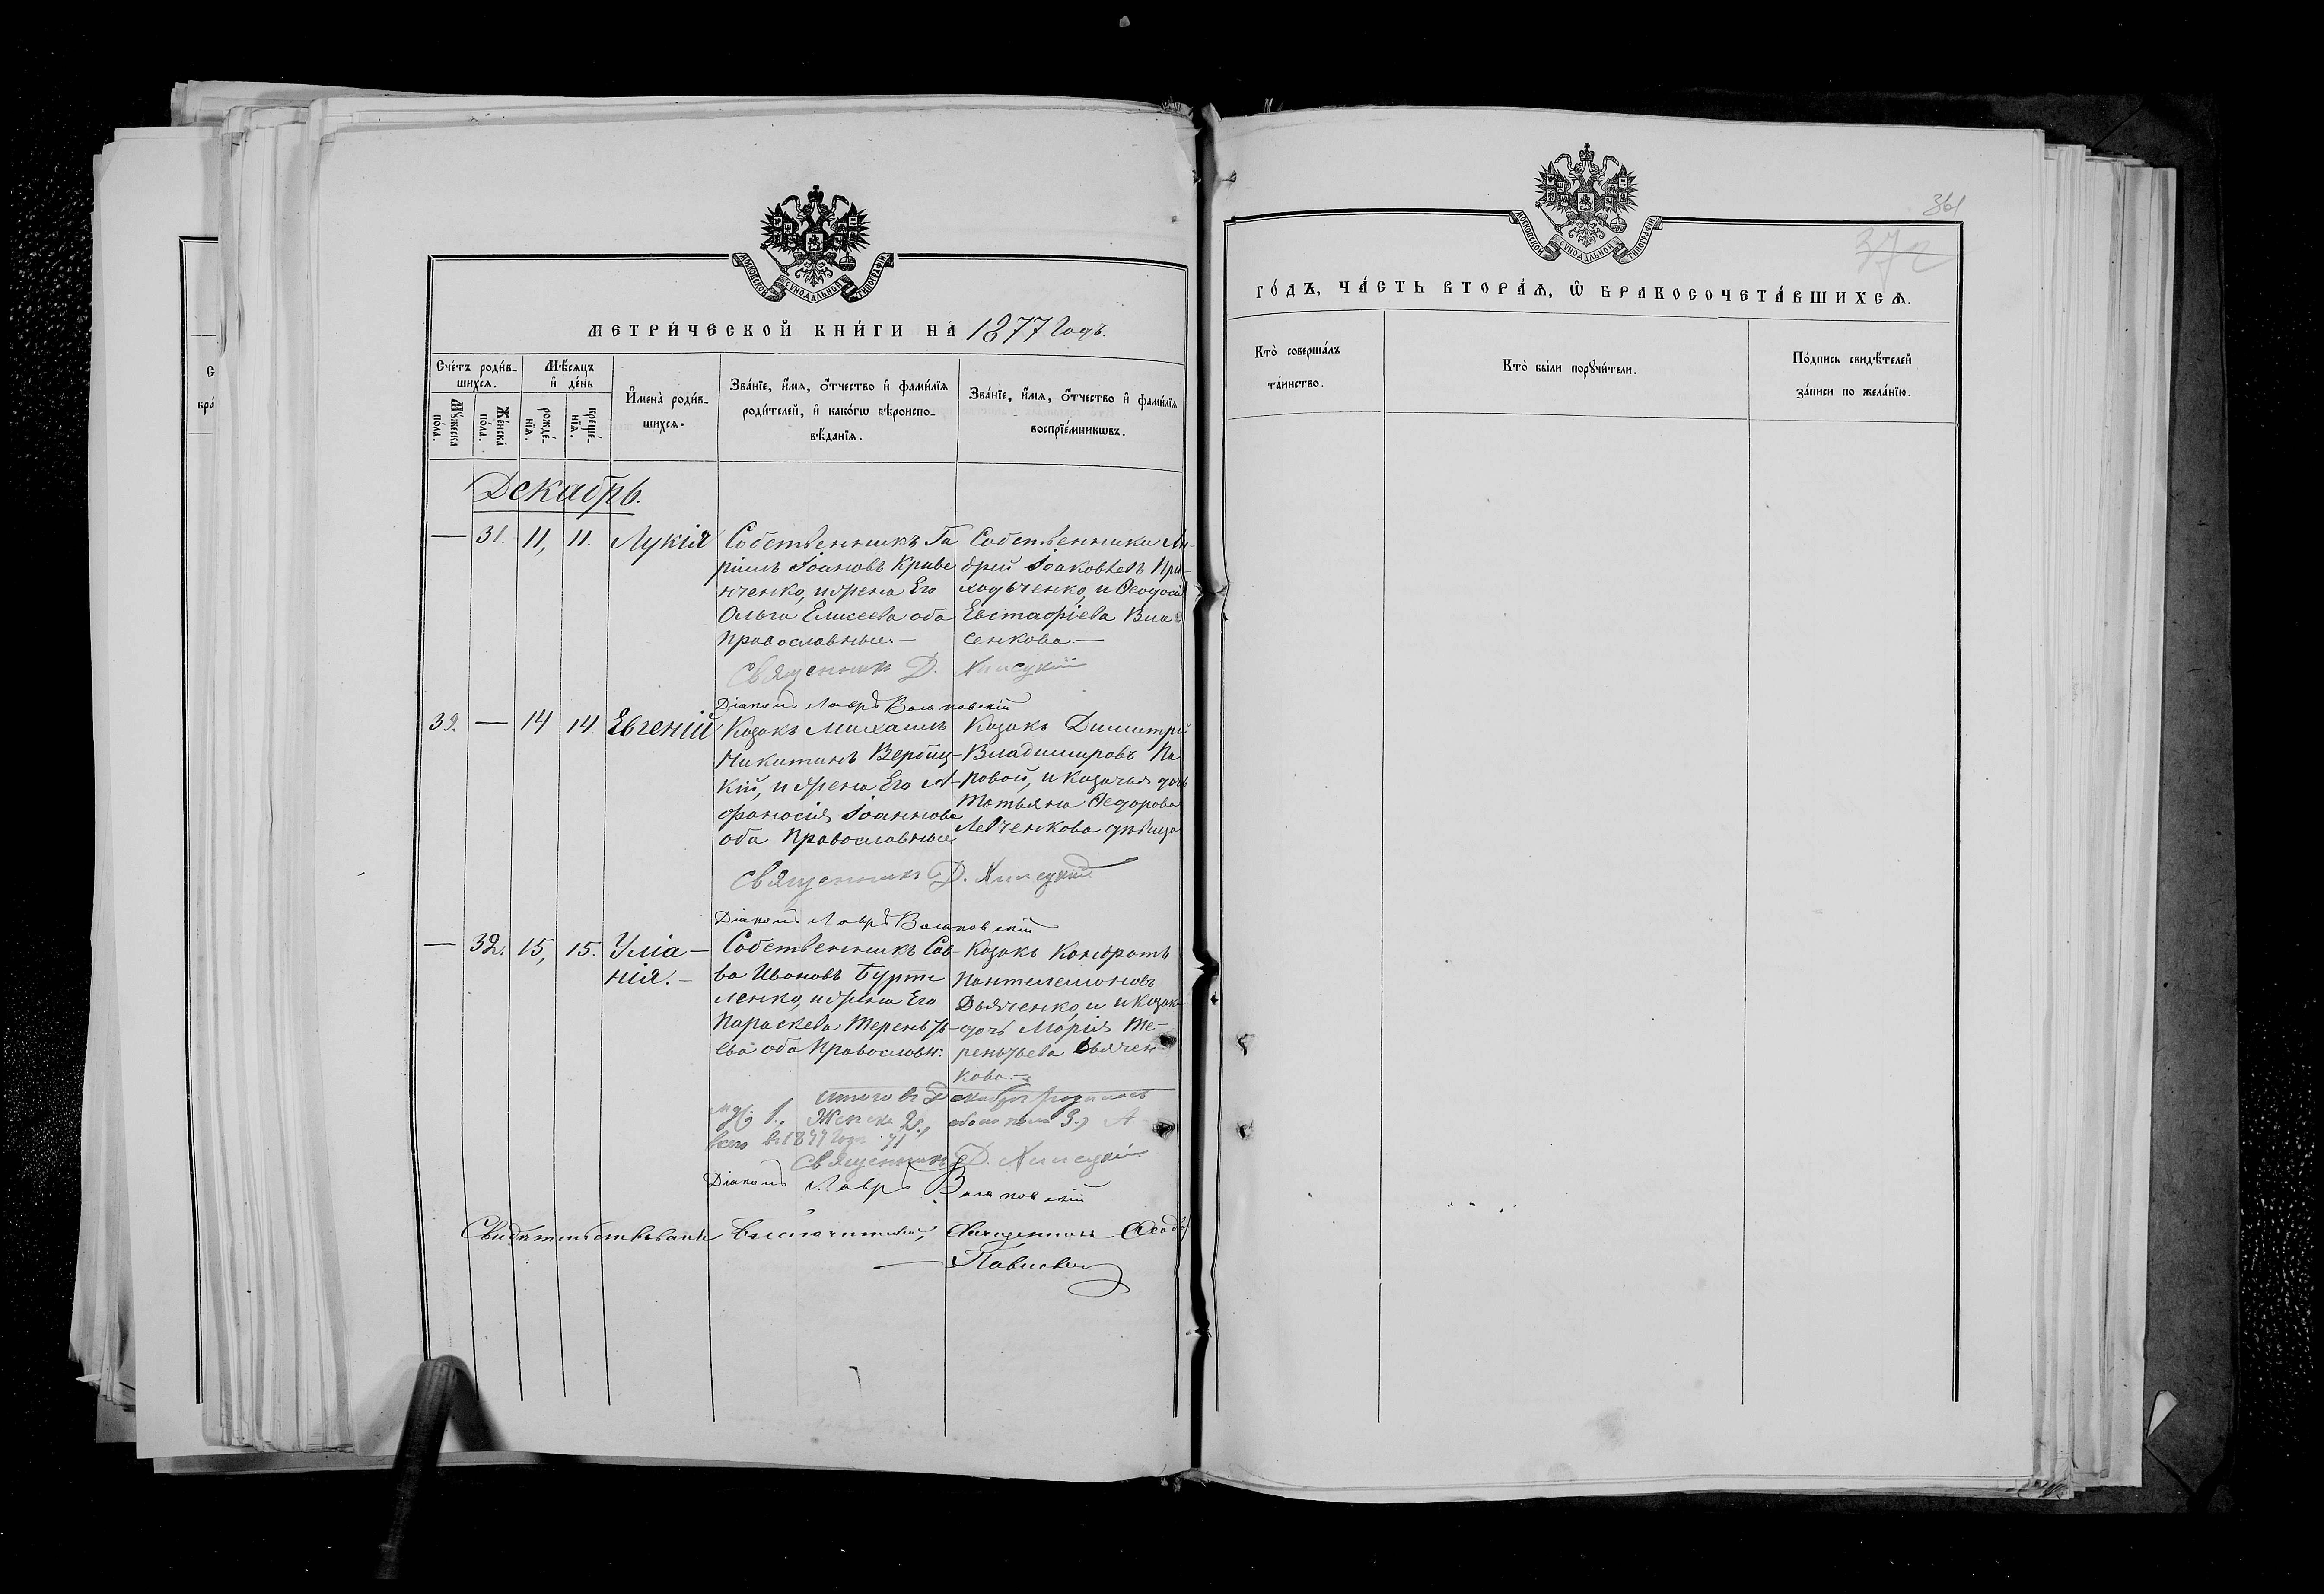 МОСКОВСКОЙ СѴНОДАЛЬНОЙ ТИПОГРАФІИ
МЕТРИ́ЧЕСКОЙ КНИ́ГИ НА̀ 1877 Годъ.
Сче́тъ роди́в-
шихсѧ.
Мѣ́сяцъ
и҆ де́нь
Мꙋ́жеска
по́ла.
Же́нска
по́ла.
рожде́-
нїѧ.
креще́-
нїѧ.
И҆мена̀ роди́в-
шихсѧ.
Зва́нїе, и҆́мѧ, ѻ҆́тчество и҆ фами́лїѧ
роди́телей, и҆ како́гѡ вѣроиспо-
вѣ́данїѧ.
Зва́нїе, и҆́мѧ, ѻ҆́тчество и҆ фами́лїѧ
воспрїе́мникѡвъ.
Декабрь.
— 31. 11, 11. Лукія
Собственникъ Га
ріилъ Іоановъ Криве
нченко, и жена Его
Ольга Елисеева оба
Православные. —
Собственники Ан-
дрей Іаковлевъ При-
ходьченко, и Ѳеодосія
Евстафіева Влас
сенкова. —
Священникъ Д.
Діаконъ Лавръ
39. — 14 14. Евгеній
Козакъ Михаилъ
Никитинъ Вербиц-
кій, и жена Его А-
фанасія Іоаннова
оба Православные
Козакъ Димитрій
Владимировъ По
повой, и Козачая дочь
Татьяна Ѳедорова
Левченкова дѣвица
Священникъ Д.
Діаконъ Лавръ
— 32. 15, 15. Уліа-
нія. —
Собственникъ Сав-
ва Ивановъ Бурти
ленко, и жена Его
Параскева Терентьѣ-
ева оба Православн:
Козакъ Кондратъ
Пантелемоновъ
Дьяченко, и и Козака
дочь Марія Те-
рентьева Дьячен
кова. —
Итого въ Декабрѣ родилось
муж. 1., Женска 2., обоего пола 3., А
всего въ 1877 Годѣ 71
Священникъ Д.
Діаконъ Лавръ
Священникъ
361
372
МОСКОВСКОЙ СѴНОДАЛЬНОЙ ТИПОГРАФІИ
ГО́ДЪ, ЧА́СТЬ ВТОРА́Ѧ, Ѽ БРАКОСОЧЕТА́ВШИХСѦ.
Кто̀ соверша́лъ
та́инство.
Кто̀ бы́ли порꙋчи́тели.
По́дпись свидѣ́телей
за́писи по жела́нїю.